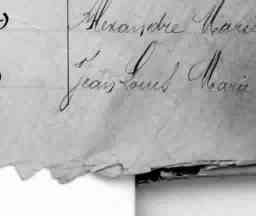 Alexandre Marie
Jean Louis Marie